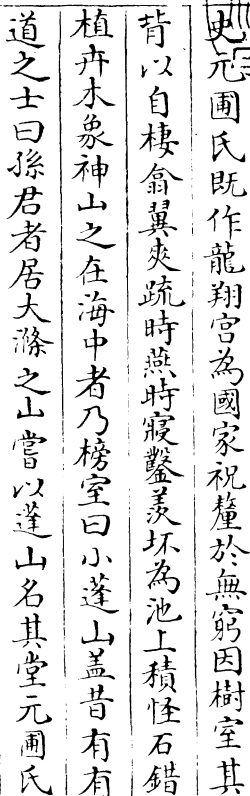 史元圃氏既作龍翔宮為國家祝釐於無窮因樹室其
背以自棲翕翼夾疏時燕時寢鑿羨坏為池上積怪石錯
植卉木象神山之在海中者乃榜室曰小蓬山盖昔有有
道之士曰孫君者居大滌之山嘗以蓬山名其堂元圃氏